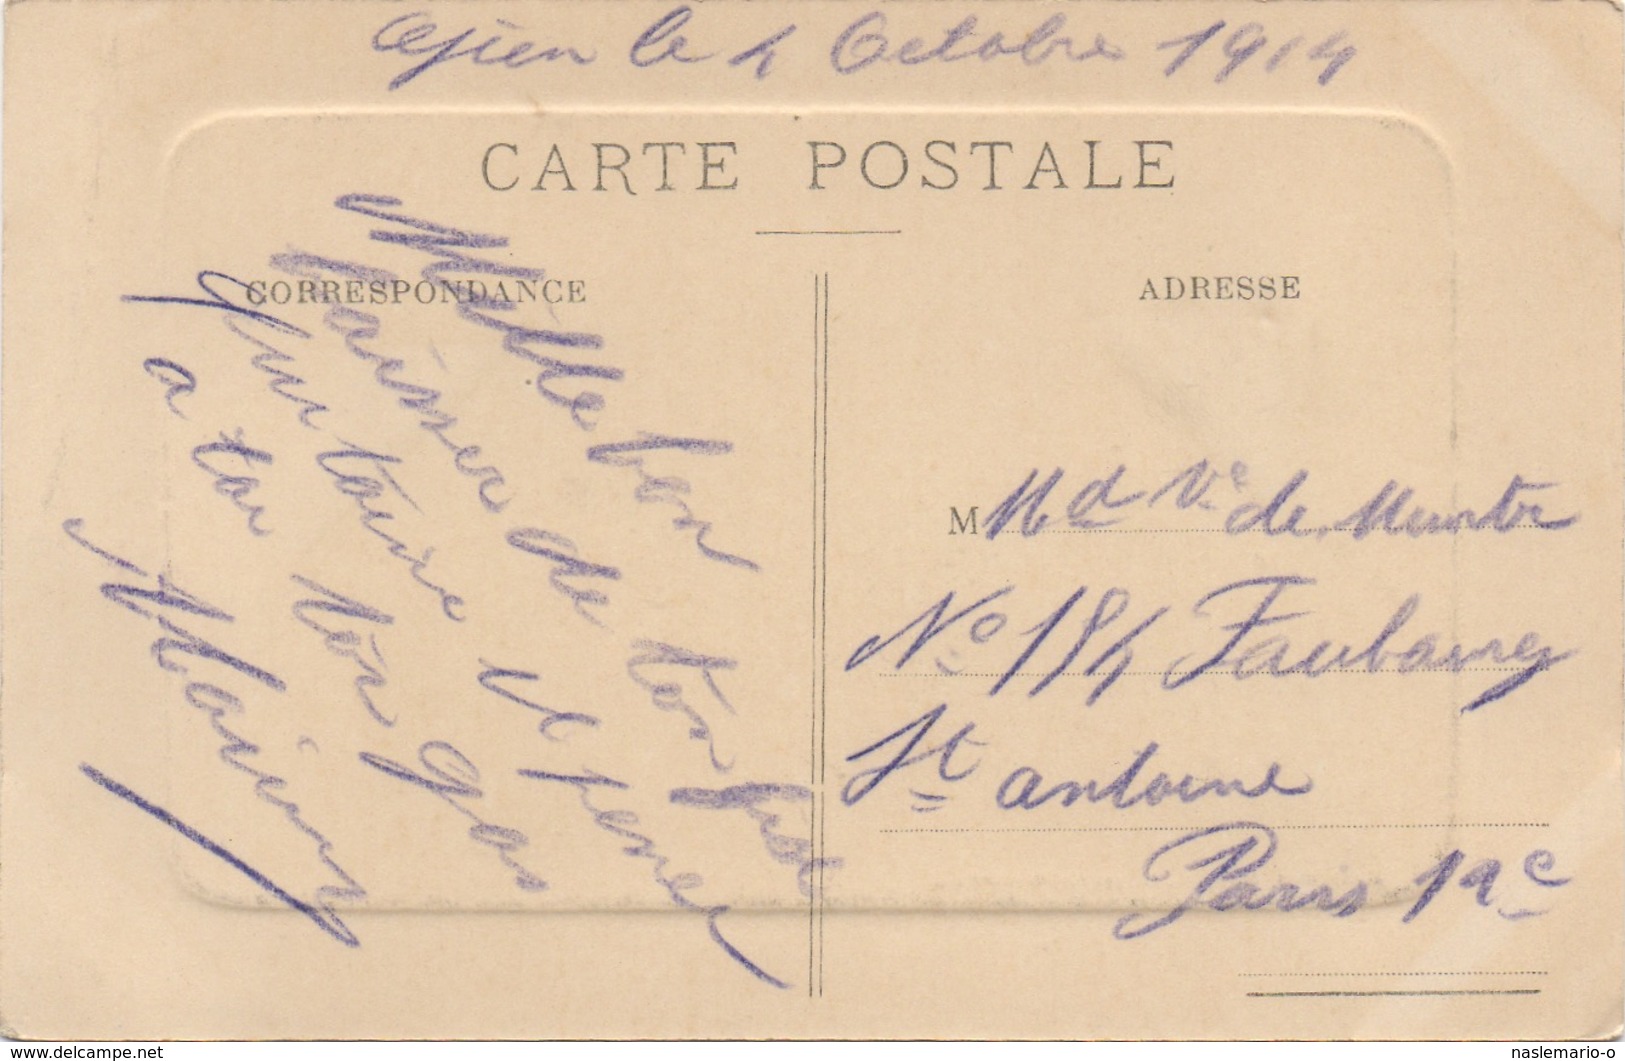 Gien le 4 Octobre 1914
CARTE POSTALE
CORRESPONDANCE
ADRESSE
Mille bon
baiser de ton fiot
qui taime et pense
a toi ton gas
Marius
M Md Ve de Munter
No 184 Faubourg
St antoine
Paris 12e
www.delcampe.net
naslemario-o